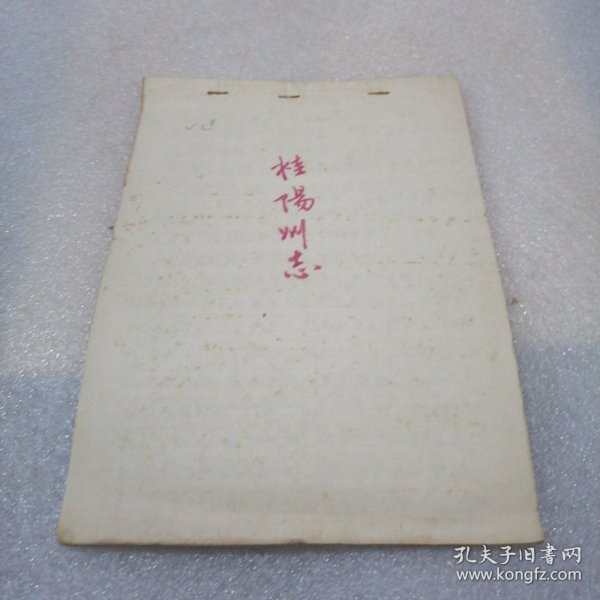 桂陽州志
孔夫子旧書网
www.kongfz.com